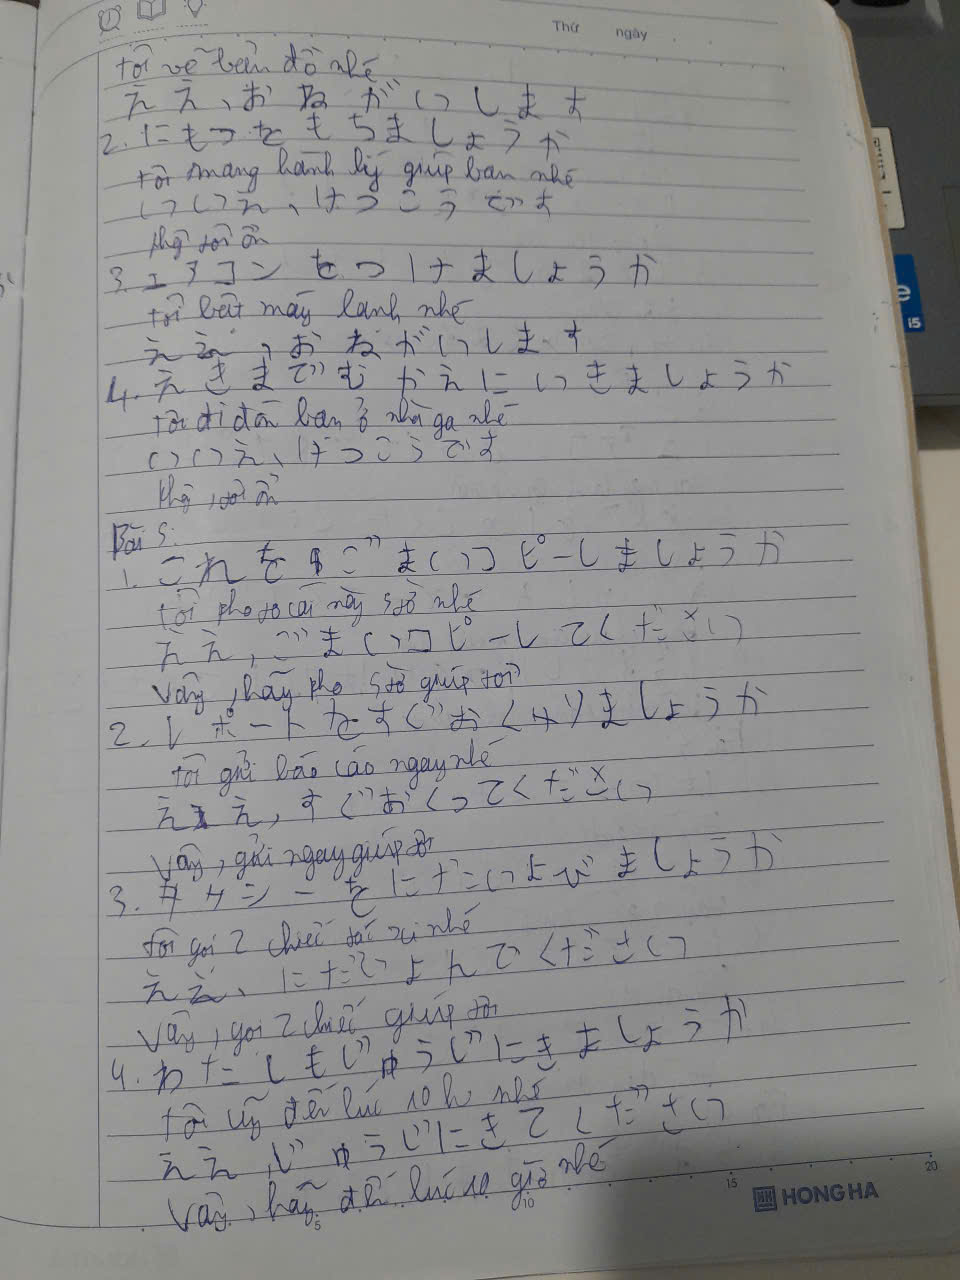 Thứ ngày
tôi vẽ bản đồ nhé
ええ、おねがいします
2. にもつをもちましょうか
tôi mang hành lý giúp bạn nhé
いいえ、けっこうです
thôi tôi ổn
3. エアコンをつけましょうか
tôi bật máy lạnh nhé
ええ、おねがいします
4. えきまでむかえにいきましょうか
tôi đi đón bạn ở nhà ga nhé
いいえ、けっこうです
thôi, tôi ổn
Bài 5:
1. これをごまいコピーしましょうか
tôi photo cái này 5 tờ nhé
ええ,ごまいコピーしてください
Vâng, hãy pho 5 tờ giúp tôi
2. レポートをすぐおくりましょうか
tôi gửi báo cáo ngay nhé
ええ, すぐおくってください
Vâng, gửi ngay giúp tôi
3. タクシーをにだいよびましょうか
tôi gọi 2 chiếc tắc xi nhé
ええ、にだいよんでください
Vâng, gọi 2 chiếc giúp tôi
4. わたしもじゅうじにきましょうか
tôi cũng đến lúc 10h nhé
ええ,じゅうじにきてください
Vâng, hãy đến lúc 10 giờ nhé
5 10 15 20
HONG HA
e
i5